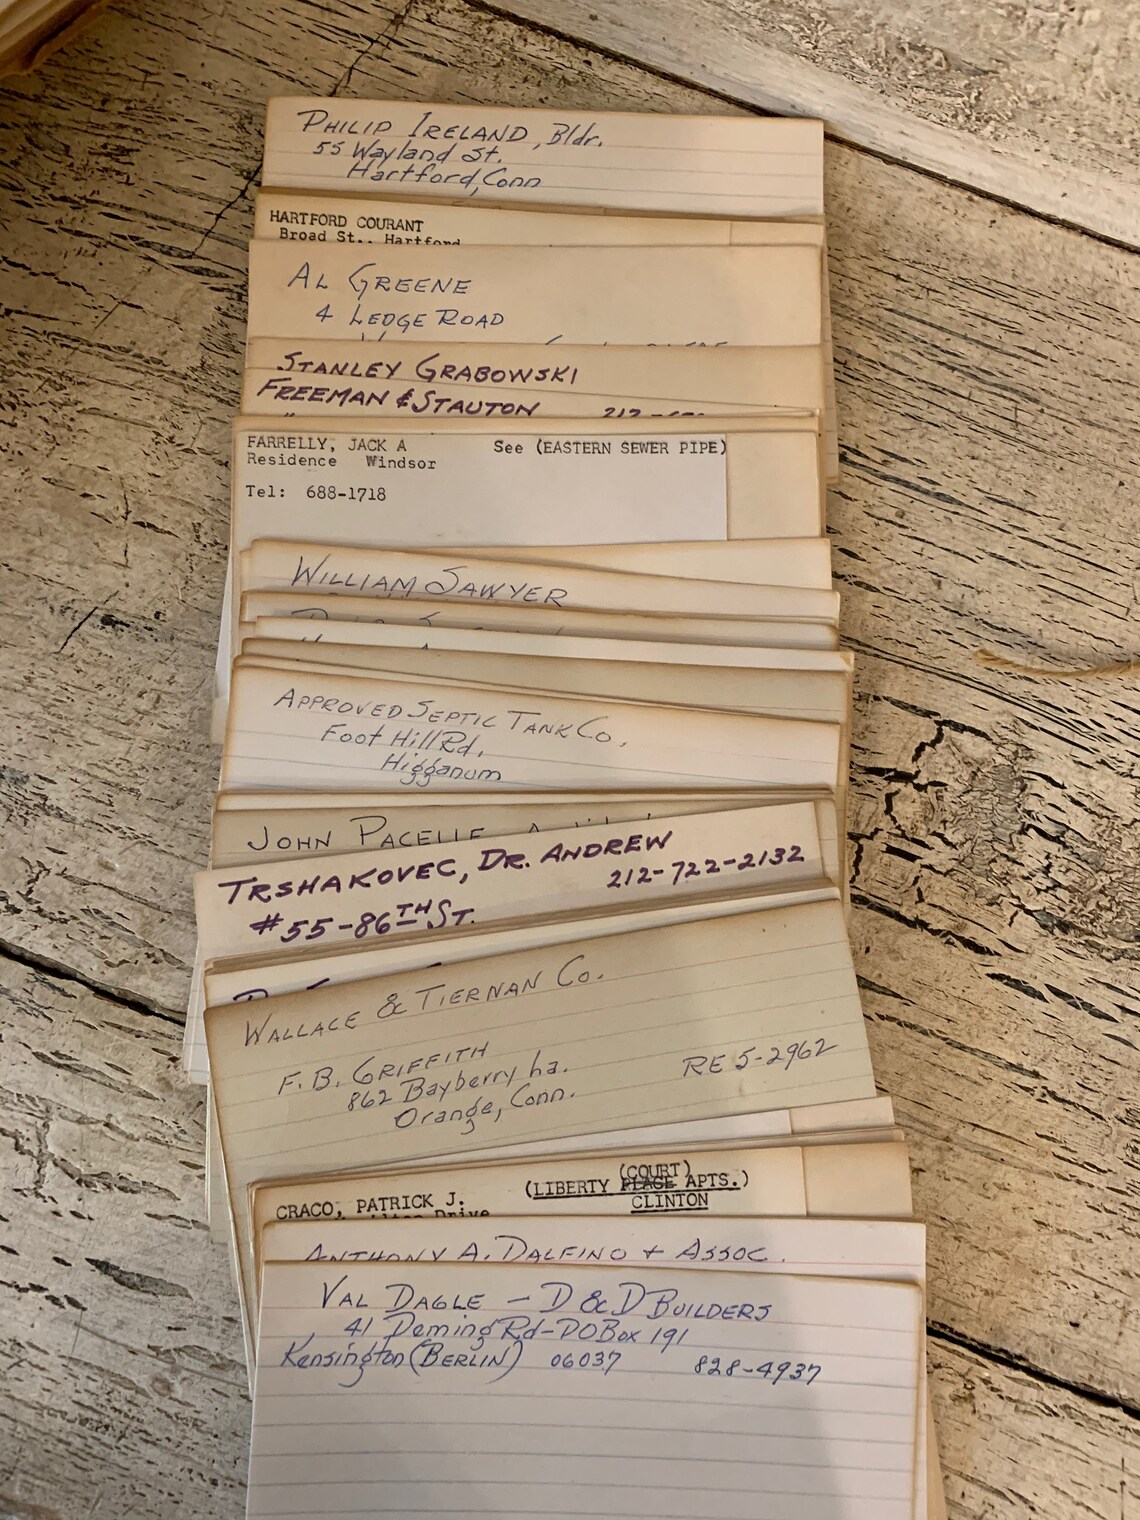 PHILIP IRELAND, Bldr.
55 Wayland St.
Hartford, Conn
HARTFORD COURANT
Broad St., Hartford
AL GREENE
4 LEDGE ROAD
STANLEY GRABOWSKI
FREEMAN & STAUTON 212-
"
FARRELLY, JACK A See (EASTERN SEWER PIPE)
Residence Windsor
Tel: 688-1718
WILLIAM SAWYER
APPROVED SEPTIC TANK CO.
Foot Hill Rd.
Higganum
JOHN PACELLE
TRSHAKOVEC, DR. ANDREW
212-722-2132
#55-86TH ST.
WALLACE & TIERNAN CO.
F. B. GRIFFITH
862 Bayberry La. RE 5-2962
Orange, Conn.
(COURT)
CRACO, PATRICK J. (LIBERTY PLACE APTS.)
Drive CLINTON
ANTHONY A. DALFINO + ASSOC.
VAL DAGLE - D & D BUILDERS
41 Deming Rd-POBox 191
Kensington (BERLIN) 06037 828-4937